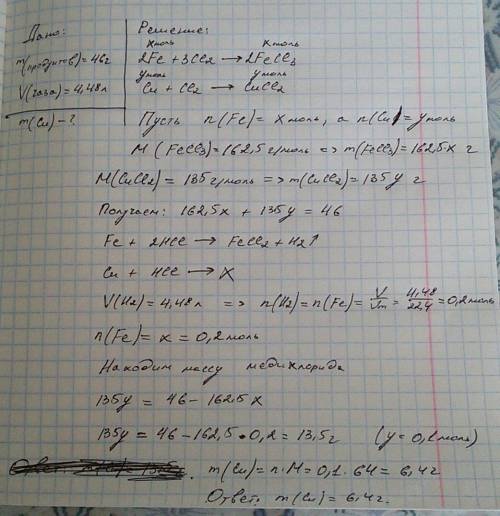 Дано:
m(продуктов) = 46г
V(газа) = 4,48л
m(Cu) - ?
Решение:
x моль x моль
2Fe + 3Cl2 → 2FeCl3
y моль y моль
Cu + Cl2 → CuCl2
Пусть n(Fe) = x моль, а n(Cu) = y моль
M(FeCl3) = 162,5 г/моль => m(FeCl3) = 162,5x г
M(CuCl2) = 135 г/моль => m(CuCl2) = 135y г
Получаем: 162,5x + 135y = 46
Fe + 2HCl → FeCl2 + H2↑
Cu + HCl → X
V(H2) = 4,48л => n(H2) = n(Fe) = V/Vm = 4,48/22,4 = 0,2моль
n(Fe) = x = 0,2моль
Находим массу меди хлорида
135y = 46 - 162,5x
135y = 46 - 162,5 • 0,2 = 13,5г (y = 0,1моль)
m(Cu) = n·M = 0,1 · 64 = 6,4г
Ответ: m(Cu) = 6,4г.